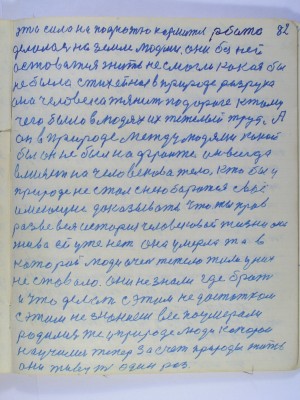 эта сила на подножию кормити работа 82
делалася на земле людьми, они без ней
оставатся жить не смогли какая бы
не была стихейная в природе разруха
она человека тянит по дороге к тому
чего было в людях их тяжелый труд. А
он в природе между людями какой
бы он не был на фронте он всегда
влияет на человека тело, кто бы у
природе не стал с нею боротся своё
имеющие доказывать что ты прав
разве вся история человеческой жизни она
жива ей уже нет она умерла та в
которой люди очен тежело жили у них
не стовало. они не знали где брать
и что делать с этим недостатком
с этим незнанием все поумерали
родилися же у природе люди которые
научилися тепер за счет природы жить
они живут один раз.